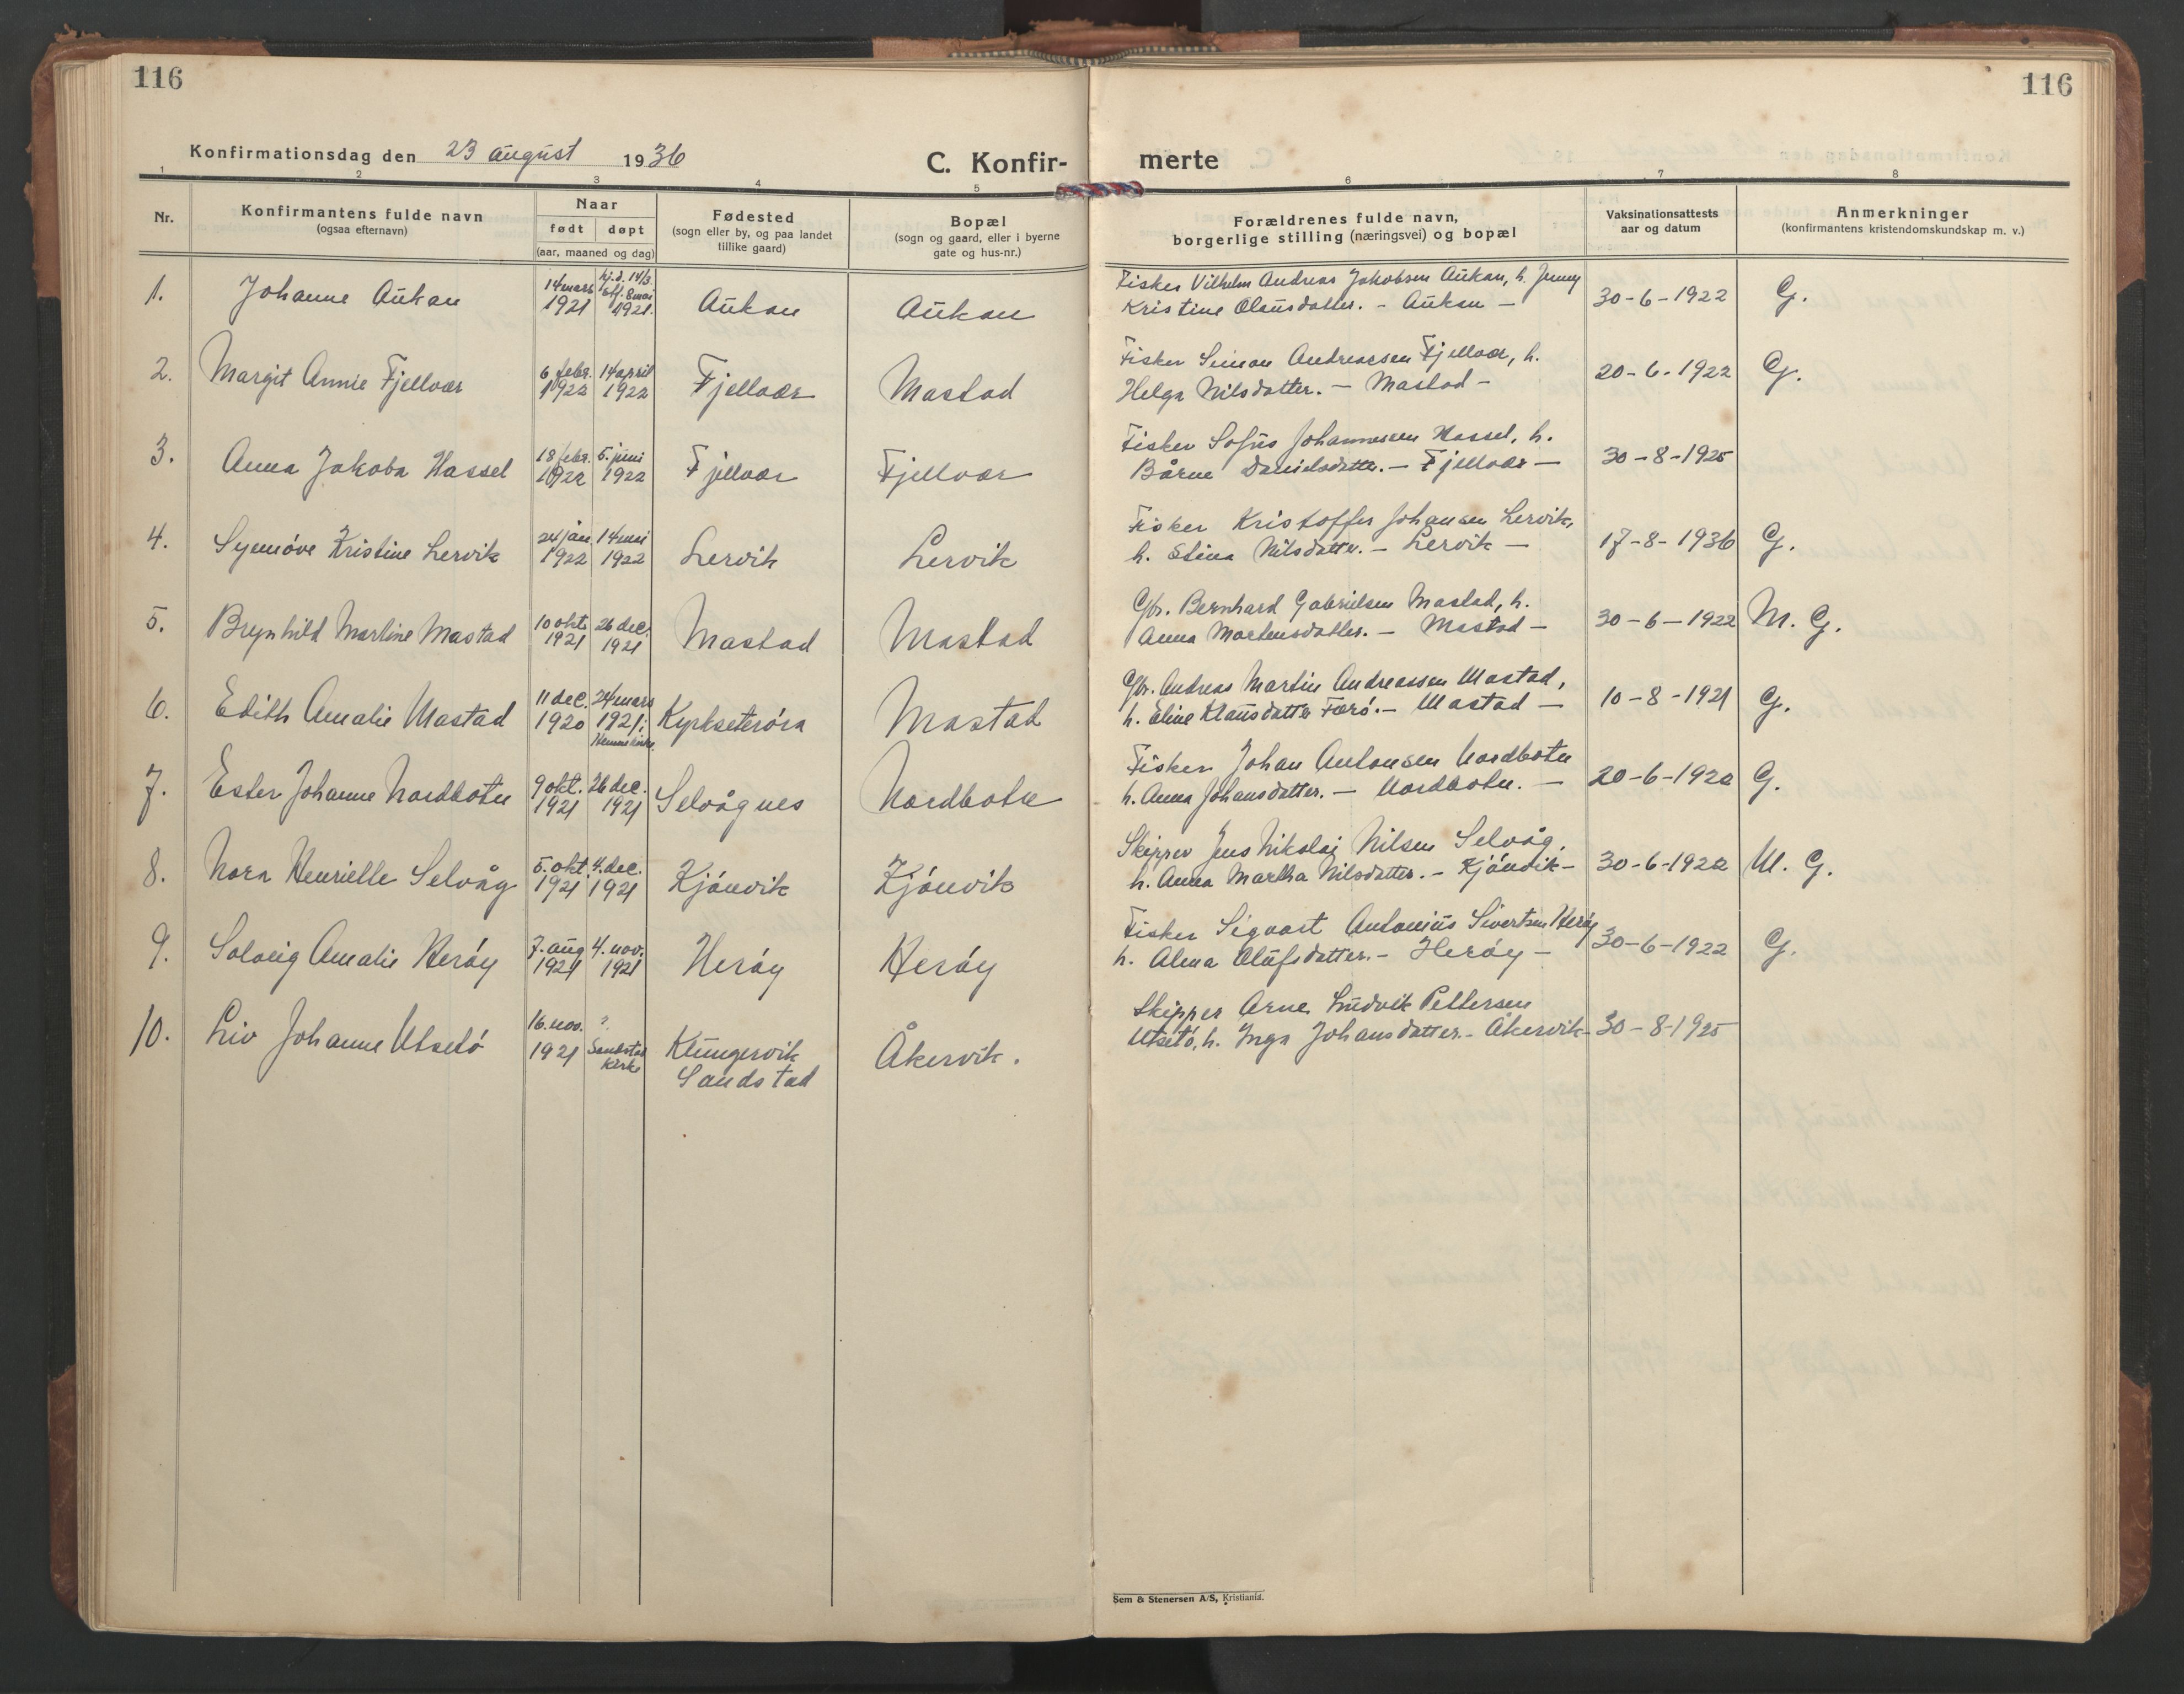 116
116
Konfirmationsdag den 23 august 1936
C. Konfir-
merte
1 2 3 4 5 6 7 8
Nr.
Konfirmantens fulde navn
(ogsaa efternavn)
Naar
født døpt
(aar, maaned og dag)
Fødested
(sogn eller by, og paa landet
tillike gaard)
Bopæl
(sogn og gaard, eller i byerne
gate og hus-nr.)
Forældrenes fulde navn,
borgerlige stilling (næringsvei) og bopæl
Vaksinationsattests
aar og datum
Anmerkninger
(konfirmantens kristendomskundskap m. v.)
1. Johanne Aukan 14 mars 1921 hj.d. 14/3. stf. 8 mai 1921. Aukan Aukan
Fisker Vilhelm Andreas Jakobsen Aukan, h. Jenny
Kristine Olausdatter. - Aukan - 30-6-1922 G.
2. Margit Annie Fjellvær 6 febr. 1922 14 april 1922 Fjellvær Mastad
Fisker Simon Andreassen Fjellvær, h.
Helga Nilsdatter. - Mastad - 20-6-1922 G.
3. Anna Jakoba Hassel 18 febr. 1922 5. juni 1922 Fjellvær Fjellvær
Fisker Sofus Johannessen Hassel, h.
Bårne Danielsdatter. - Fjellvær - 30-8-1925
4. Synnøve Kristine Lervik 24 jan. 1922 14 mai 1922 Lervik Lervik
Fisker Kristoffer Johansen Lervik,
h. Stina Nilsdatter. - Lervik - 17-8-1936 G.
5. Brynhild Martine Mastad 10 okt. 1921 26 dec. 1921 Mastad Mastad
Gbr. Bernhard Gabrielsen Mastad, h.
Anna Mortensdatter. - Mastad - 30-6-1922 M. G.
6. Edith Amalie Mastad 11 dec. 1920 24 mars 1921: Hemne kirke. Kyrkseterøra Mastad
Gbr. Andreas Martin Andreassen Mastad,
h. Eline Klausdatter Færø. - Mastad - 10-8-1921 G.
7. Ester Johanne Nordbotn 9 okt. 1921 26 dec. 1921 Selvågnes Nordbotn
Fisker Johan Antonsen Nordbotn
h. Anna Johansdatter. - Nordbotn. - 20-6-1922 G.
8. Nora Henrielle Selvåg 5. okt. 1921 4. dec. 1921 Kjønvik Kjønvik
Skipper Jens Nikolai Nilsen Selvåg.
h. Anna Martha Nilsdatter. - Kjønvik - 30-6-1922 M. G.
9. Solveig Amalie Herøy 7. aug 1921 4. nov. 1921 Herøy Herøy
Fisker Sigvart Antonius Sivertsen Herøy
h. Alma Olufsdatter. - Herøy - 30-6-1922 G.
10. Liv Johanne Utsetø 16. nov. 1921 ? Sandstad kirke Klungervik Sandstad Åkervik.
Skipper Arne Ludvik Pettersen
Utsetø, h. Inga Johansdatter. - Åkervik - 30-8-1925
Sem & Stenersen A/S, Kristiania.